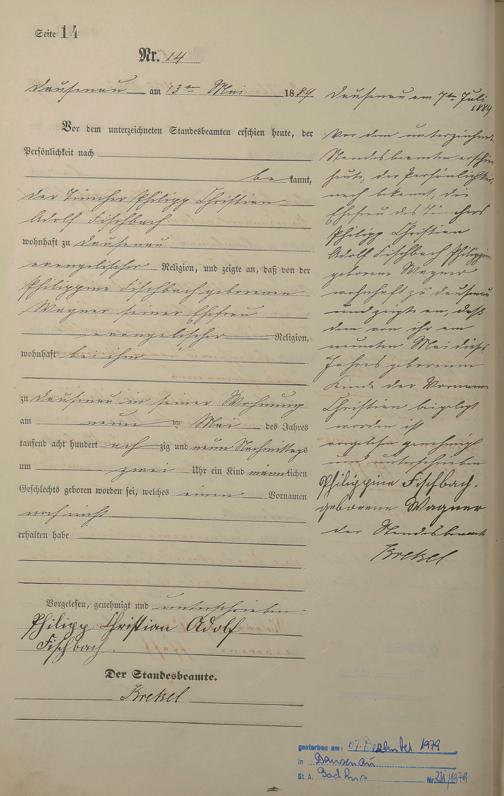 Seite 14
Nr. 14
Dausenau am 13ten Mai 1889
Vor dem unterzeichneten Standesbeamten erschien heute, der
Persönlichkeit nach
bekannt,
der Tüncher Philipp Christian
Adolf Fischbach
wohnhaft zu Dausenau
evangelischer Religion, und zeigte an, daß von der
Philippine Fischbach geborenen
Wagner seiner Ehefrau
evangelischer Religion,
wohnhaft bei ihm
zu Dausenau in seiner Wohnung
am neun ten Mai des Jahres
tausend acht hundert achzig und neun Nachmittags
um zwei Uhr ein Kind männlichen
Geschlechts geboren worden sei, welches einen Vornamen
noch nicht
erhalten habe
Vorgelesen, genehmigt und unterschrieben
Philipp Christian Adolf
Fischbach.
Der Standesbeamte.
Krekel
Dausenau am 7ten Juli
1889
Vor dem unterzeichneten
Standesbeamten erschien
heute, der Persönlichkeit
nach bekannt, die
Ehefrau des Tünchers
Philipp Christian
Adolf Fischbach Philippine
geborene Wagner
wohnhaft zu Dausenau
und zeigte an, daß
dem von ihr am
neunten Mai dieses
Jahres geborenen
Kinde der Vorname
Christian beigelegt
worden ist
vorgelesen genehmigt
und unterschrieben
Philippine Fischbach.
geborene Wagner
der Standesbeamte
Krekel
gestorben am: 07. Dezember 1979
in Dausenau
St. A. Bad Ems Nr.